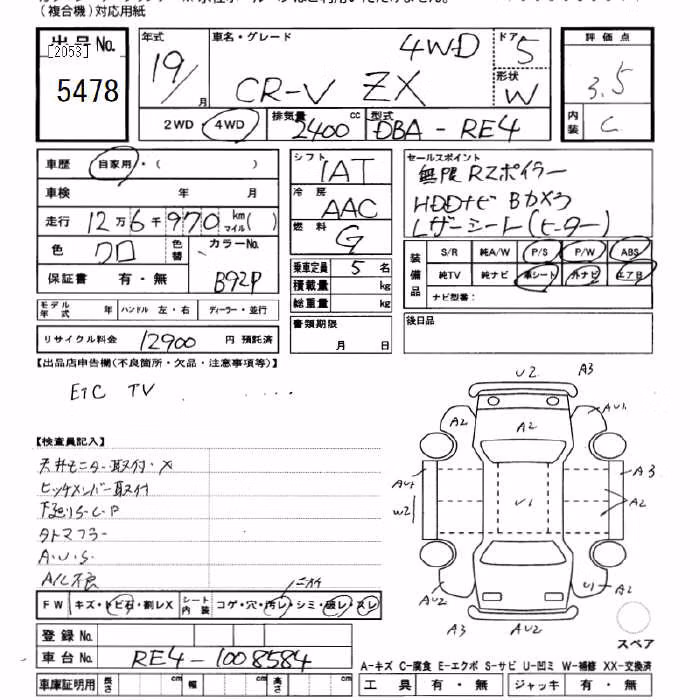 (複合機)対応用紙
出品No.
[2053]
5478
年式
19/
月
車名・グレード
4WD
CR-V ZX
ドア
5
形状
W
評価点
3.5
内装
C
2WD・4WD
排気量
2400
cc
型式
DBA-RE4
車歴
自家用・( )
車検 年 月
走行 12万6千970 km マイル( )
色 クロ
色替
カラーNo.
B92P
保証書 有・無
モデル年式 年
ハンドル 左・右
ディーラー・並行
リサイクル料金 12900 円 預託済
シフト
IAT
冷房
AAC
燃料
G
乗車定員 5 名
積載量 kg
総重量 kg
書類期限
月 日
セールスポイント
無限RZポイラー
HDDナビ Bカメラ
Lザーシート(ヒーター)
装備品
S/R 純A/W P/S P/W ABS
純TV 純ナビ 革シート 外ナビ エアB
ナビ型番:
後日品
【出品店申告欄(不良箇所・欠品・注意事項等)】
EtC TV
【検査員記入】
天井モニター取付・×
ヒッチメンバー取付
下廻りS・C・P
タトマフラー
A・U・S
A/C不良
FW キズ・トビ石・割レX
シート内装 コゲ・穴・汚レ・シミ・破レ・スレ
ニオイ
登録No.
車台No. RE4-1008584
車庫証明用 長さ cm 幅 cm 高さ cm
U2
A3
A2
A2
AU1
AU1
W2
U1
A3
A2
AU2
U1
A2
A3
AU2
スペア
A-キズ C-腐食 E-エクボ S-サビ U-凹ミ W-補修 XX-交換済
工具 有・無 ジャッキ 有・無